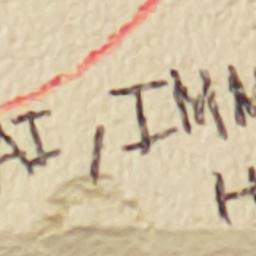 AI, IMM
H